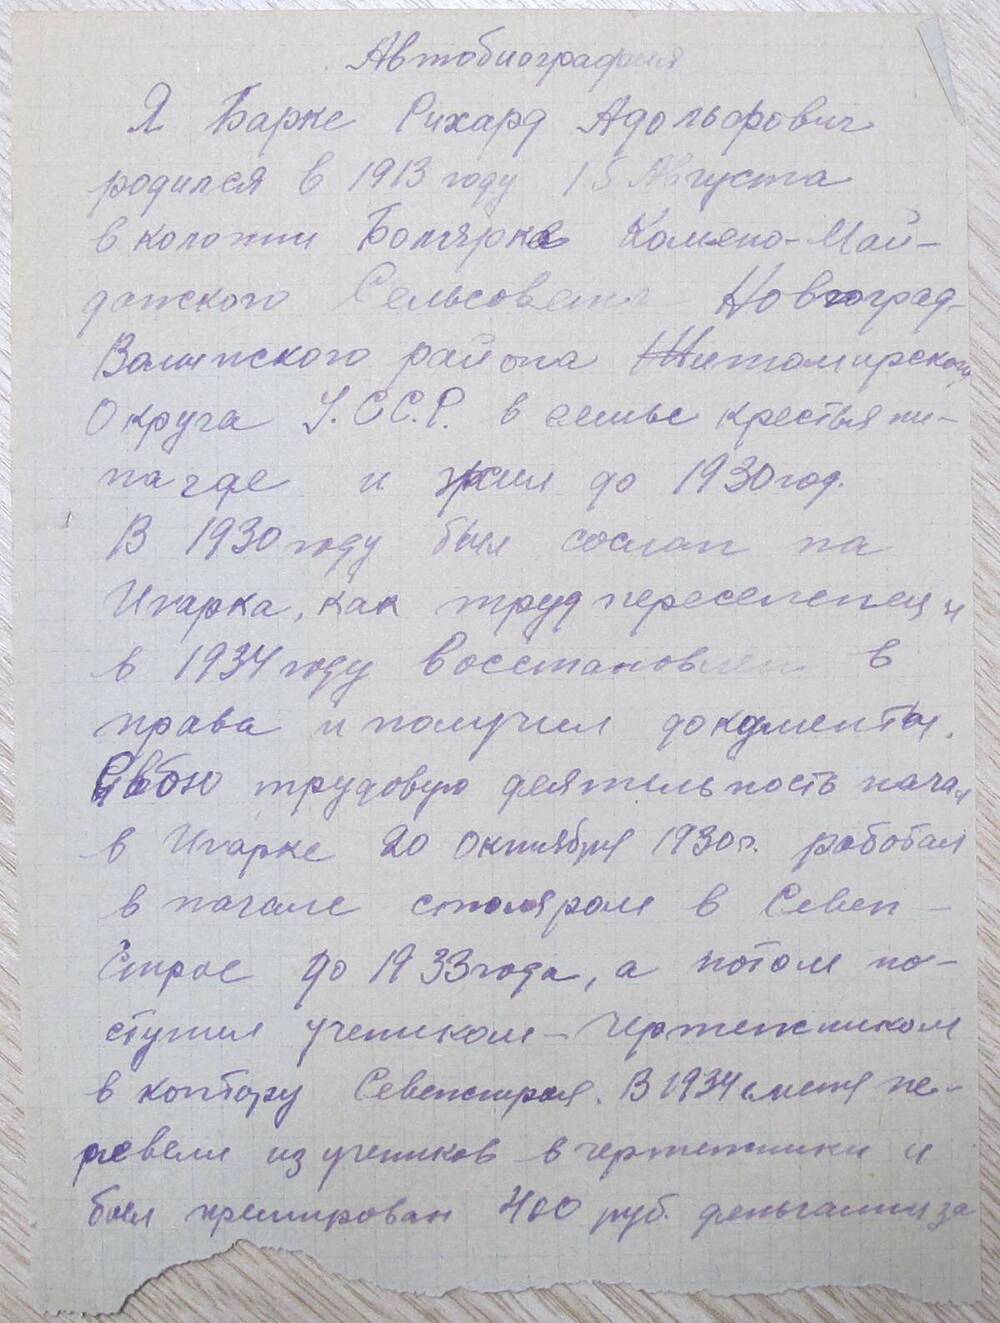 Автобиография
Я Барке Рихард Адольфович
родился в 1913 году 15 Августа
в колонии Болярка Камено-Май-
данского Сельсовета Новоград
Волынского района Житомирского
Округа У.С.С.Р. в семье крестьяни-
на где и жил до 1930 год.
В 1930 году был сослан на
Игарка, как трудпереселенец и
в 1934 году Восстановлен в
права и получил документы.
Свою трудовую деятельность начал
в Игарке 20 Октября 1930 г. работал
в начале столяром в Север-
Строе до 1933 года, а потом по-
ступил учеником-чертежником
в контору Северстроя. В 1934 меня пе-
ревели из учеников в чертежники и
был премирован 400 руб. деньгами за